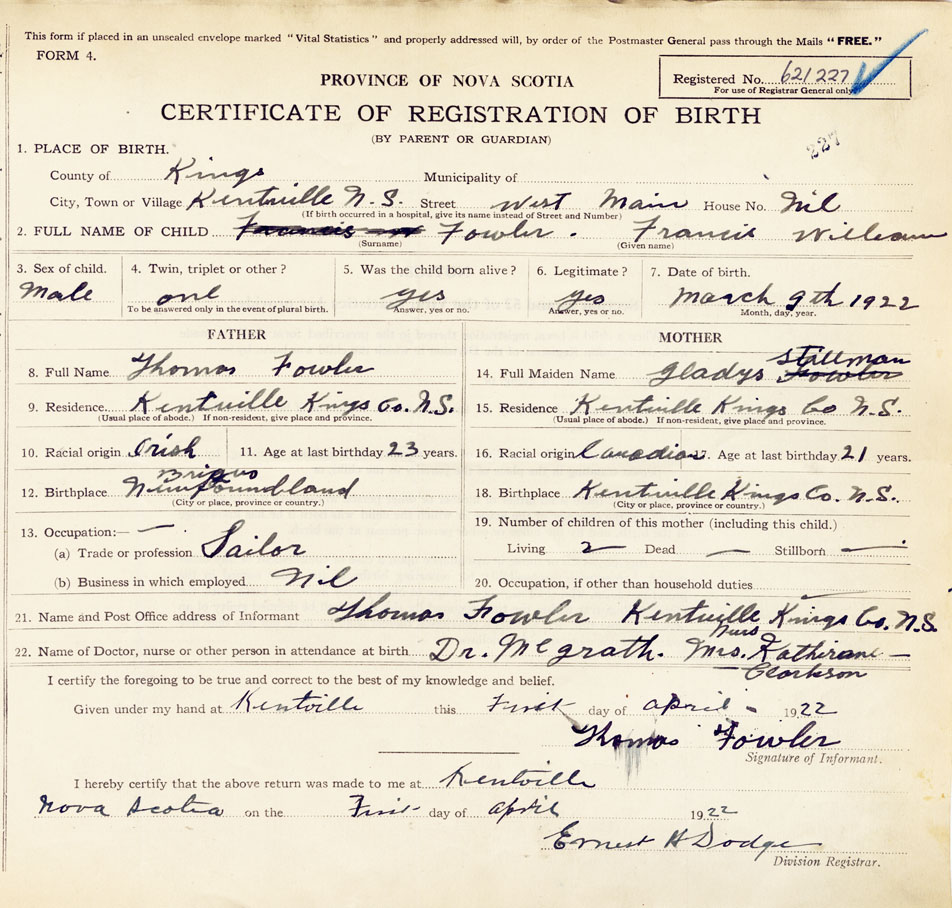 This form if placed in an unsealed envelope marked "Vital Statistics" and properly addressed will, by order of the Postmaster General pass through the Mails "FREE."
FORM 4.
PROVINCE OF NOVA SCOTIA
Registered No. 621227
For use of Registrar General only
CERTIFICATE OF REGISTRATION OF BIRTH
(BY PARENT OR GUARDIAN)
227
1. PLACE OF BIRTH.
County of Kings Municipality of
City, Town or Village Kentville N.S. Street West Main House No. Nil
(If birth occurred in a hospital, give its name instead of Street and Number)
2. FULL NAME OF CHILD Francis Fowler. Francis William
(Surname) (Given name)
3. Sex of child. 4. Twin, triplet or other? 5. Was the child born alive? 6. Legitimate? 7. Date of birth.
Male one yes yes March 9th 1922
To be answered only in the event of plural birth. Answer, yes or no. Answer, yes or no. Month, day, year.
FATHER MOTHER
8. Full Name Thomas Fowler
9. Residence Kentville Kings Co. N.S.
(Usual place of abode.) If non-resident, give place and province.
10. Racial origin Irish 11. Age at last birthday 23 years.
Brigus
12. Birthplace Newfoundland
(City or place, province or country.)
13. Occupation:— —
(a) Trade or profession Sailor
(b) Business in which employed Nil
Stillman
14. Full Maiden Name Gladys Fowler
15. Residence Kentville Kings Co N.S.
(Usual place of abode.) If non-resident, give place and province.
16. Racial origin Canadian 17. Age at last birthday 21 years.
18. Birthplace Kentville Kings Co. N.S.
(City or place, province or country.)
19. Number of children of this mother (including this child.)
Living 2 Dead — Stillborn —
20. Occupation, if other than household duties
21. Name and Post Office address of Informant Thomas Fowler Kentville Kings Co. N.S.
Nurs
22. Name of Doctor, nurse or other person in attendance at birth Dr. McGrath. Mrs. Katherane —
Clarkson
I certify the foregoing to be true and correct to the best of my knowledge and belief.
Given under my hand at Kentville this First day of April 1922
Thomas Fowler
Signature of Informant.
I hereby certify that the above return was made to me at Kentville
Nova Scotia on the First day of April 1922
Ernest H Dodge
Division Registrar.